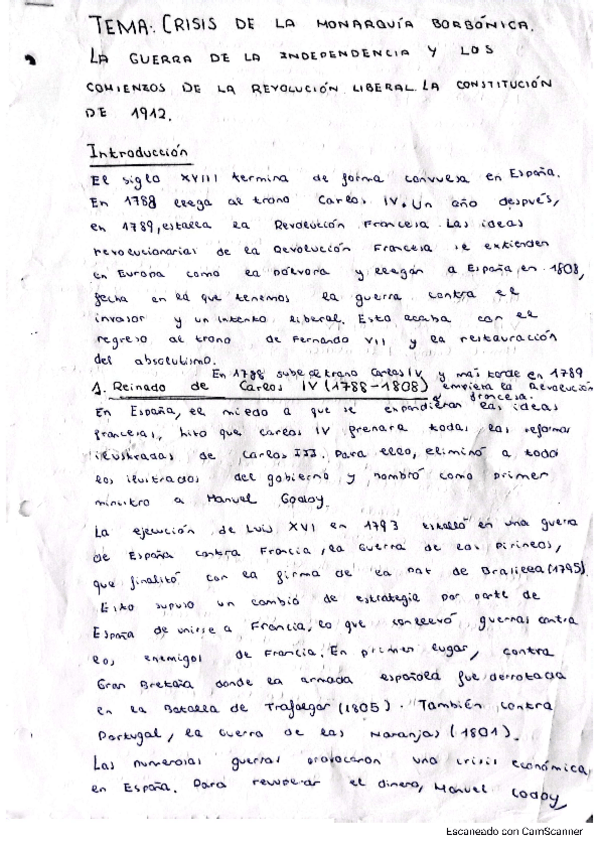 TEMA: CRISIS DE LA MONARQUÍA BORBÓNICA.
LA GUERRA DE LA INDEPENDENCIA Y LOS
COMIENZOS DE LA REVOLUCIÓN LIBERAL. LA CONSTITUCIÓN
DE 1912.
Introducción
El siglo XVIII termina de forma convulsa en España.
En 1788 llega al trono Carlos IV. Un año después,
en 1789, estalla la Revolución Francesa. Las ideas
revolucionarias de la Revolución Francesa se extienden
en Europa como la pólvora y llegan a España, en 1808,
fecha en la que tenemos la guerra contra el
invasor y un intento liberal. Esto acaba con el
regreso al trono de Fernando VII y la restauración
del absolutismo.
En 1788 sube al trono Carlos IV y más tarde en 1789
empieza la Revolución francesa.
1. Reinado de Carlos IV (1788-1808)
En España, el miedo a que se expandieran las ideas
francesas, hizo que Carlos IV frenara todas las reformas
ilustradas de Carlos III. Para ello, eliminó a todos
los ilustrados del gobierno y nombró como primer
ministro a Manuel Godoy.
La ejecución de Luis XVI en 1793 estalló en una guerra
de España contra Francia, la Guerra de los Pirineos,
que finalizó con la firma de la Paz de Basilea (1795).
Esto supuso un cambio de estrategia por parte de
España de unirse a Francia, lo que conllevó guerras contra
los enemigos de Francia. En primer lugar, contra
Gran Bretaña donde la armada española fue derrotada
en la Batalla de Trafalgar (1805). También contra
Portugal, la Guerra de las Naranjas (1801).
Las numerosas guerras provocaron una crisis económica
en España. Para recuperar el dinero, Manuel Godoy
Escaneado con CamScanner